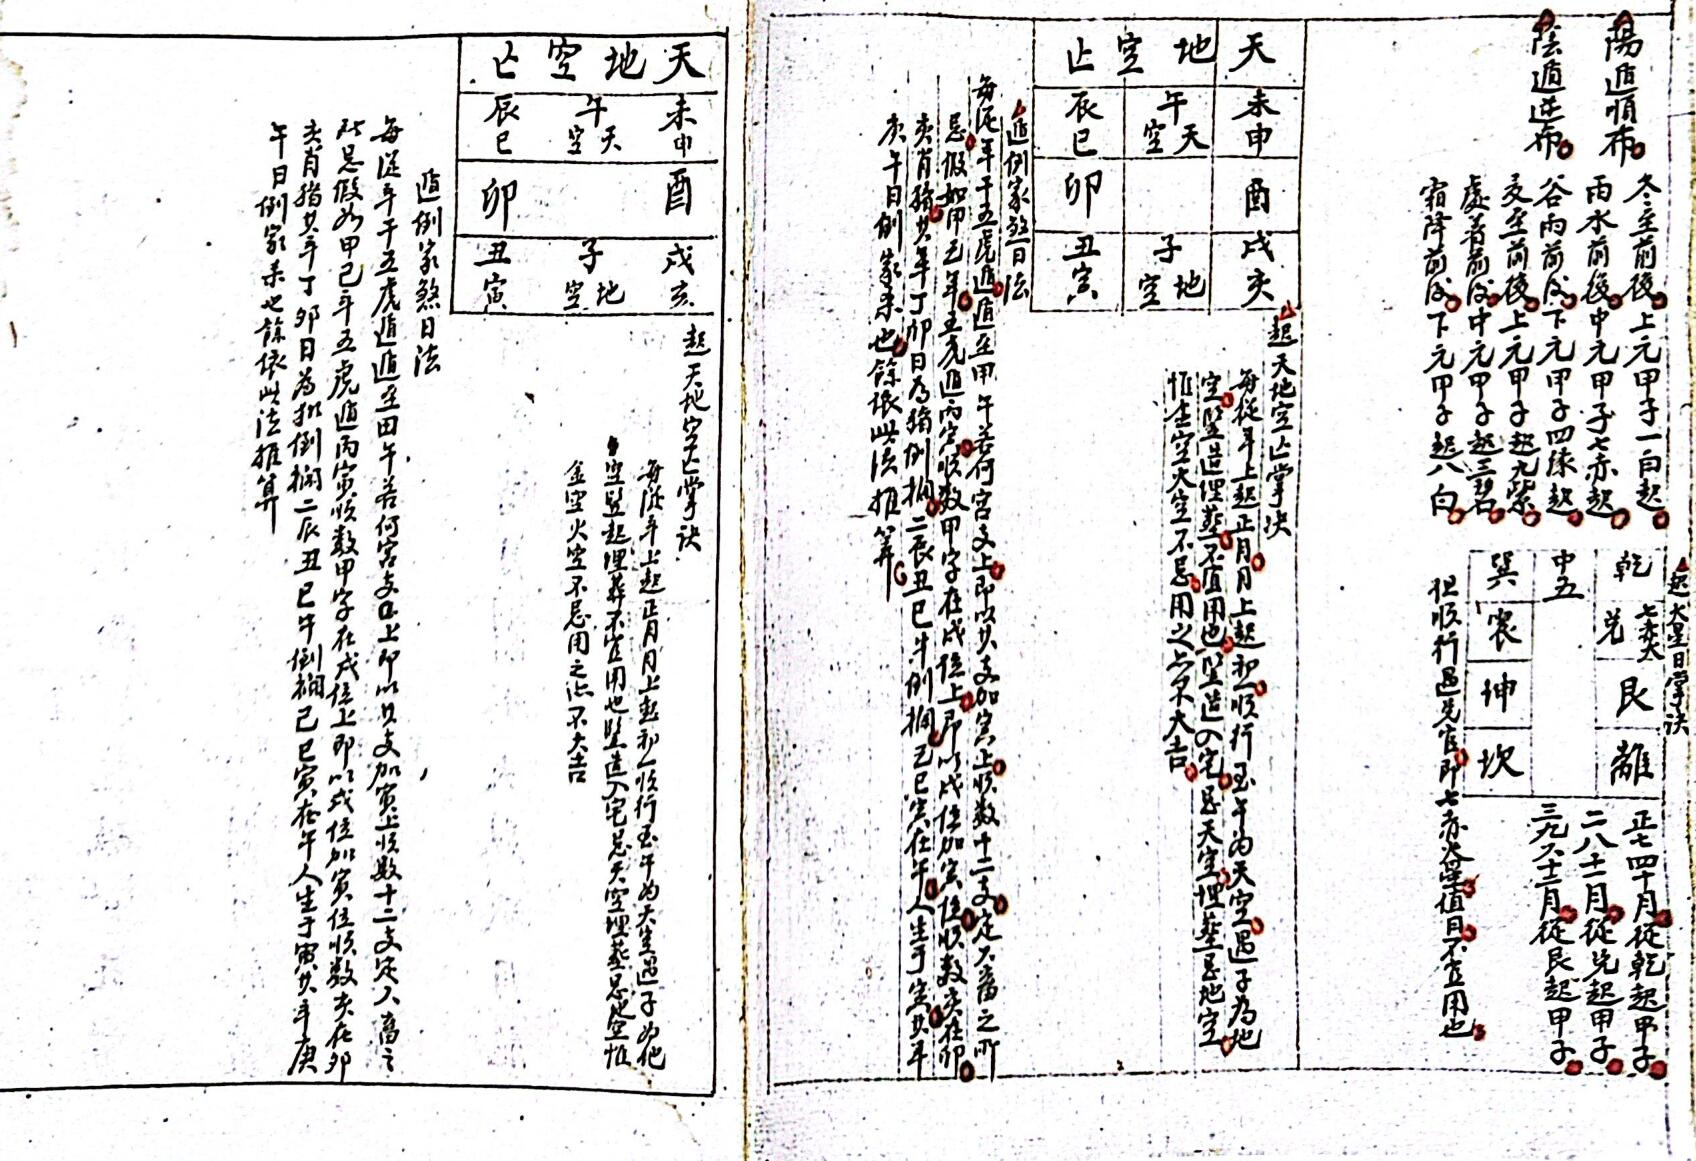 陽遁順布
陰遁逆布
冬至前後上元甲子一白起
雨水前後中元甲子七赤起
谷雨前後下元甲子四綠起
夏至前後上元甲子起九紫
處暑前後中元甲子起三碧
霜降前後下元甲子起八白
起火星日掌訣
乾 兌 七赤火 艮 離
中五
巽 震 坤 坎
正七四十月從乾起甲子
二八十一月從兌起甲子
三九六十二月從艮起甲子
但順行遇兌宮即七赤火星值日不宜用也
天地空亡
未申 午 天空 辰巳
酉 卯
戌亥 子 地空 丑寅
起天地空亡掌訣
每從年上起正月月上起初一順行至午為天空遇子為地
空豎造埋葬不宜用也豎造入宅忌天空埋葬忌地空
惟金空火空不忌用之亦不大吉
遁例家煞日法
每從年干五虎遁遁至甲午若何宮支上即以其支加寅上順數十二支定人畜之所
忌假如甲己年五虎遁丙寅順數甲字在戌位上即以戌位加寅位順數亥在卯
亥肖豬其年丁卯日為豬倒欄二辰丑巳牛倒欄己巳寅在午人生于寅其年
庚午日倒家禾也餘依此法推算
天地空亡
未申 午 天空 辰巳
酉 卯
戌亥 子 地空 丑寅
起天地空亡掌訣
每從年上起正月月上起初一順行至午為天空遇子為地
空豎起埋葬不宜用也豎造入宅忌天空埋葬忌地空惟
金空火空不忌用之亦不大吉
遁例家煞日法
每從年干五虎遁遁至甲午若何宮支上即以其支加寅上順數十二支定人畜之
所忌假如甲己年五虎遁丙寅順數甲字在戌位上即以戌位加寅位順數亥在卯
亥肖豬其年丁卯日為豬倒欄二辰丑巳牛倒欄己巳寅在午人生于寅其年庚
午日倒家禾也餘依此法推算